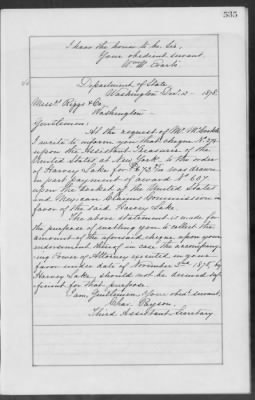 535
I have the honor to be, Sir,
Your obedient servant,
Wm H.
Department of State,
Washington Dec. 10 1878.
Messrs Riggs & Co,
Washington
Gentlemen:
At the request of Mr.
I write to inform you that cheque No. 
upon the Assistant Treasurer of the
United States at New York, to the order
of Harvey Lake for $ was drawn
in part payment of award No. 
upon the docket of the United States
and Mexican Claims Commission in
favor of the said Harvey Lake.
The above statement is made for
the purpose of enabling you to collect the
amount of the aforesaid cheque upon your
endorsement thereof in case the accompany-
ing Power of Attorney executed in your
favor under date of November 1878, by
Harvey Lake, should not be deemed suf-
ficient for that purpose.
I am, Gentlemen, Your obedt servant,
Chas. Payson,
Third Assistant Secretary